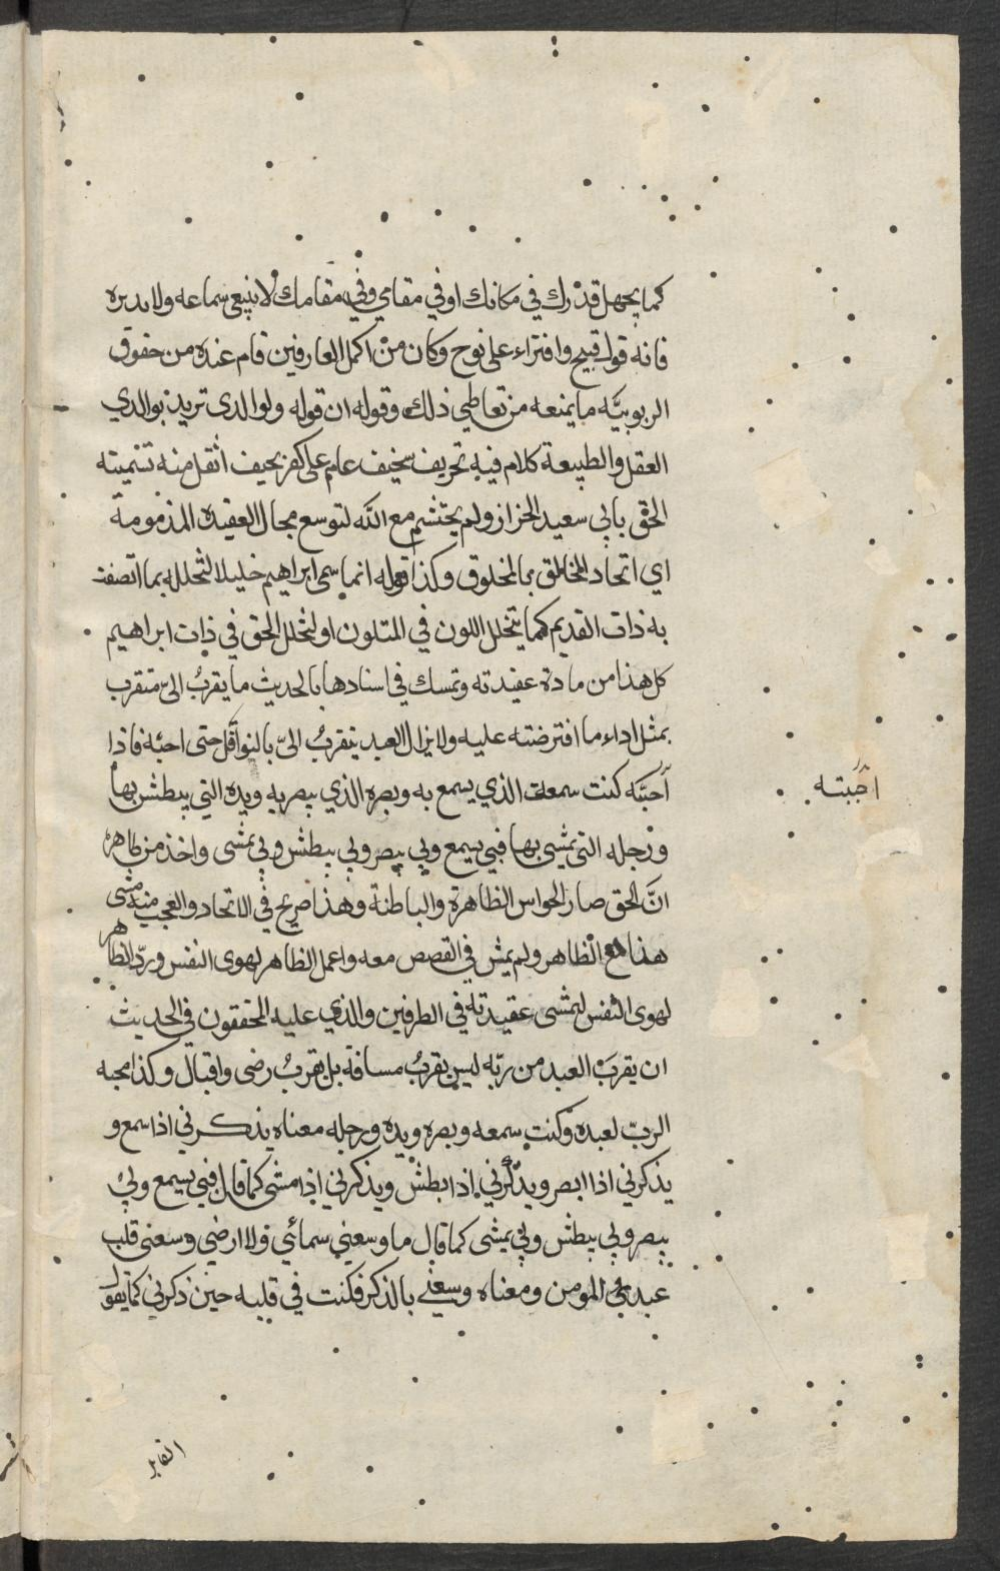 كما يجهل قدرك في مكانك او في مقامي وفي مقامك لا ينبغي سماعه ولا يديره
فانه قول قبيح وافتراء على نوح وكان من اكمل العارفين قام عنده من حقوق
الربوبيّه ما يمنعه من تعاطي ذلك وقوله ان قوله ولوالدى تريد بوالدي
العقل والطبيعة كلام فيه تحريف سخيف عام على كفر اثقل منه تسميته
الحق بابي سعيد الخراز ولم يحتشم مع الله لتوسع مجال العقيدة المذمومة
اي اتحاد الخالق بالمخلوق وكذا قوله انما سمى ابراهيم خليلا لتخلله بما اتصفت
به ذات القديم كما يتخلل اللون في المتلون او لتخلل الحق في ذات ابراهيم
كل هذا من مادة عقيدته وتمسك في اسنادها بالحديث ما يقربُ الىّ متقرب
بمثل اداء ما افترضته عليه ولا يزال العبد يتقربُ الىّ بالنوافل حتى احبّه فاذا
احبَبته
أحبّته كنت سمعه الذي يسمع به وبصره الذي يبصر به ويده التي يبطش بها
ورجله التي يمشى بها فبي يسمع وبي يبصر وبي يبطش وبي يمشى واخذ من ظاهره
انّ الحق صار الحواس الظاهرة والباطنة وهذا صريح في الاتحاد والعجب منه مشى
هذا مع الظاهر ولم يمش في القصص معه واعمل الظاهر لهوى النفس وردّ الظاهر
لهوى النفس لتمشى عقيدته في الطرفين والذي عليه المحققون في الحديث
ان يقربَ العبد من ربّه ليس بقربُ مسافة بل بقربُ رضى واقبال وكذا محبه
الربّ لعبده وكنت سمعه وبصره ويده ورجله معناه يذكرني اذا سمع و
يذكرني اذا ابصر ويذكرني اذا بطش ويذكرني اذا مشى كما قال فبي يسمع وبي
يبصر وبي يبطش وبي يمشى كما قال ما وسعني سمائي ولا ارضي وسعنى قلب
عبدي المومن ومعناه وسعني بالذكر فكنت في قلبه حين ذكرني كما يقول
القايل